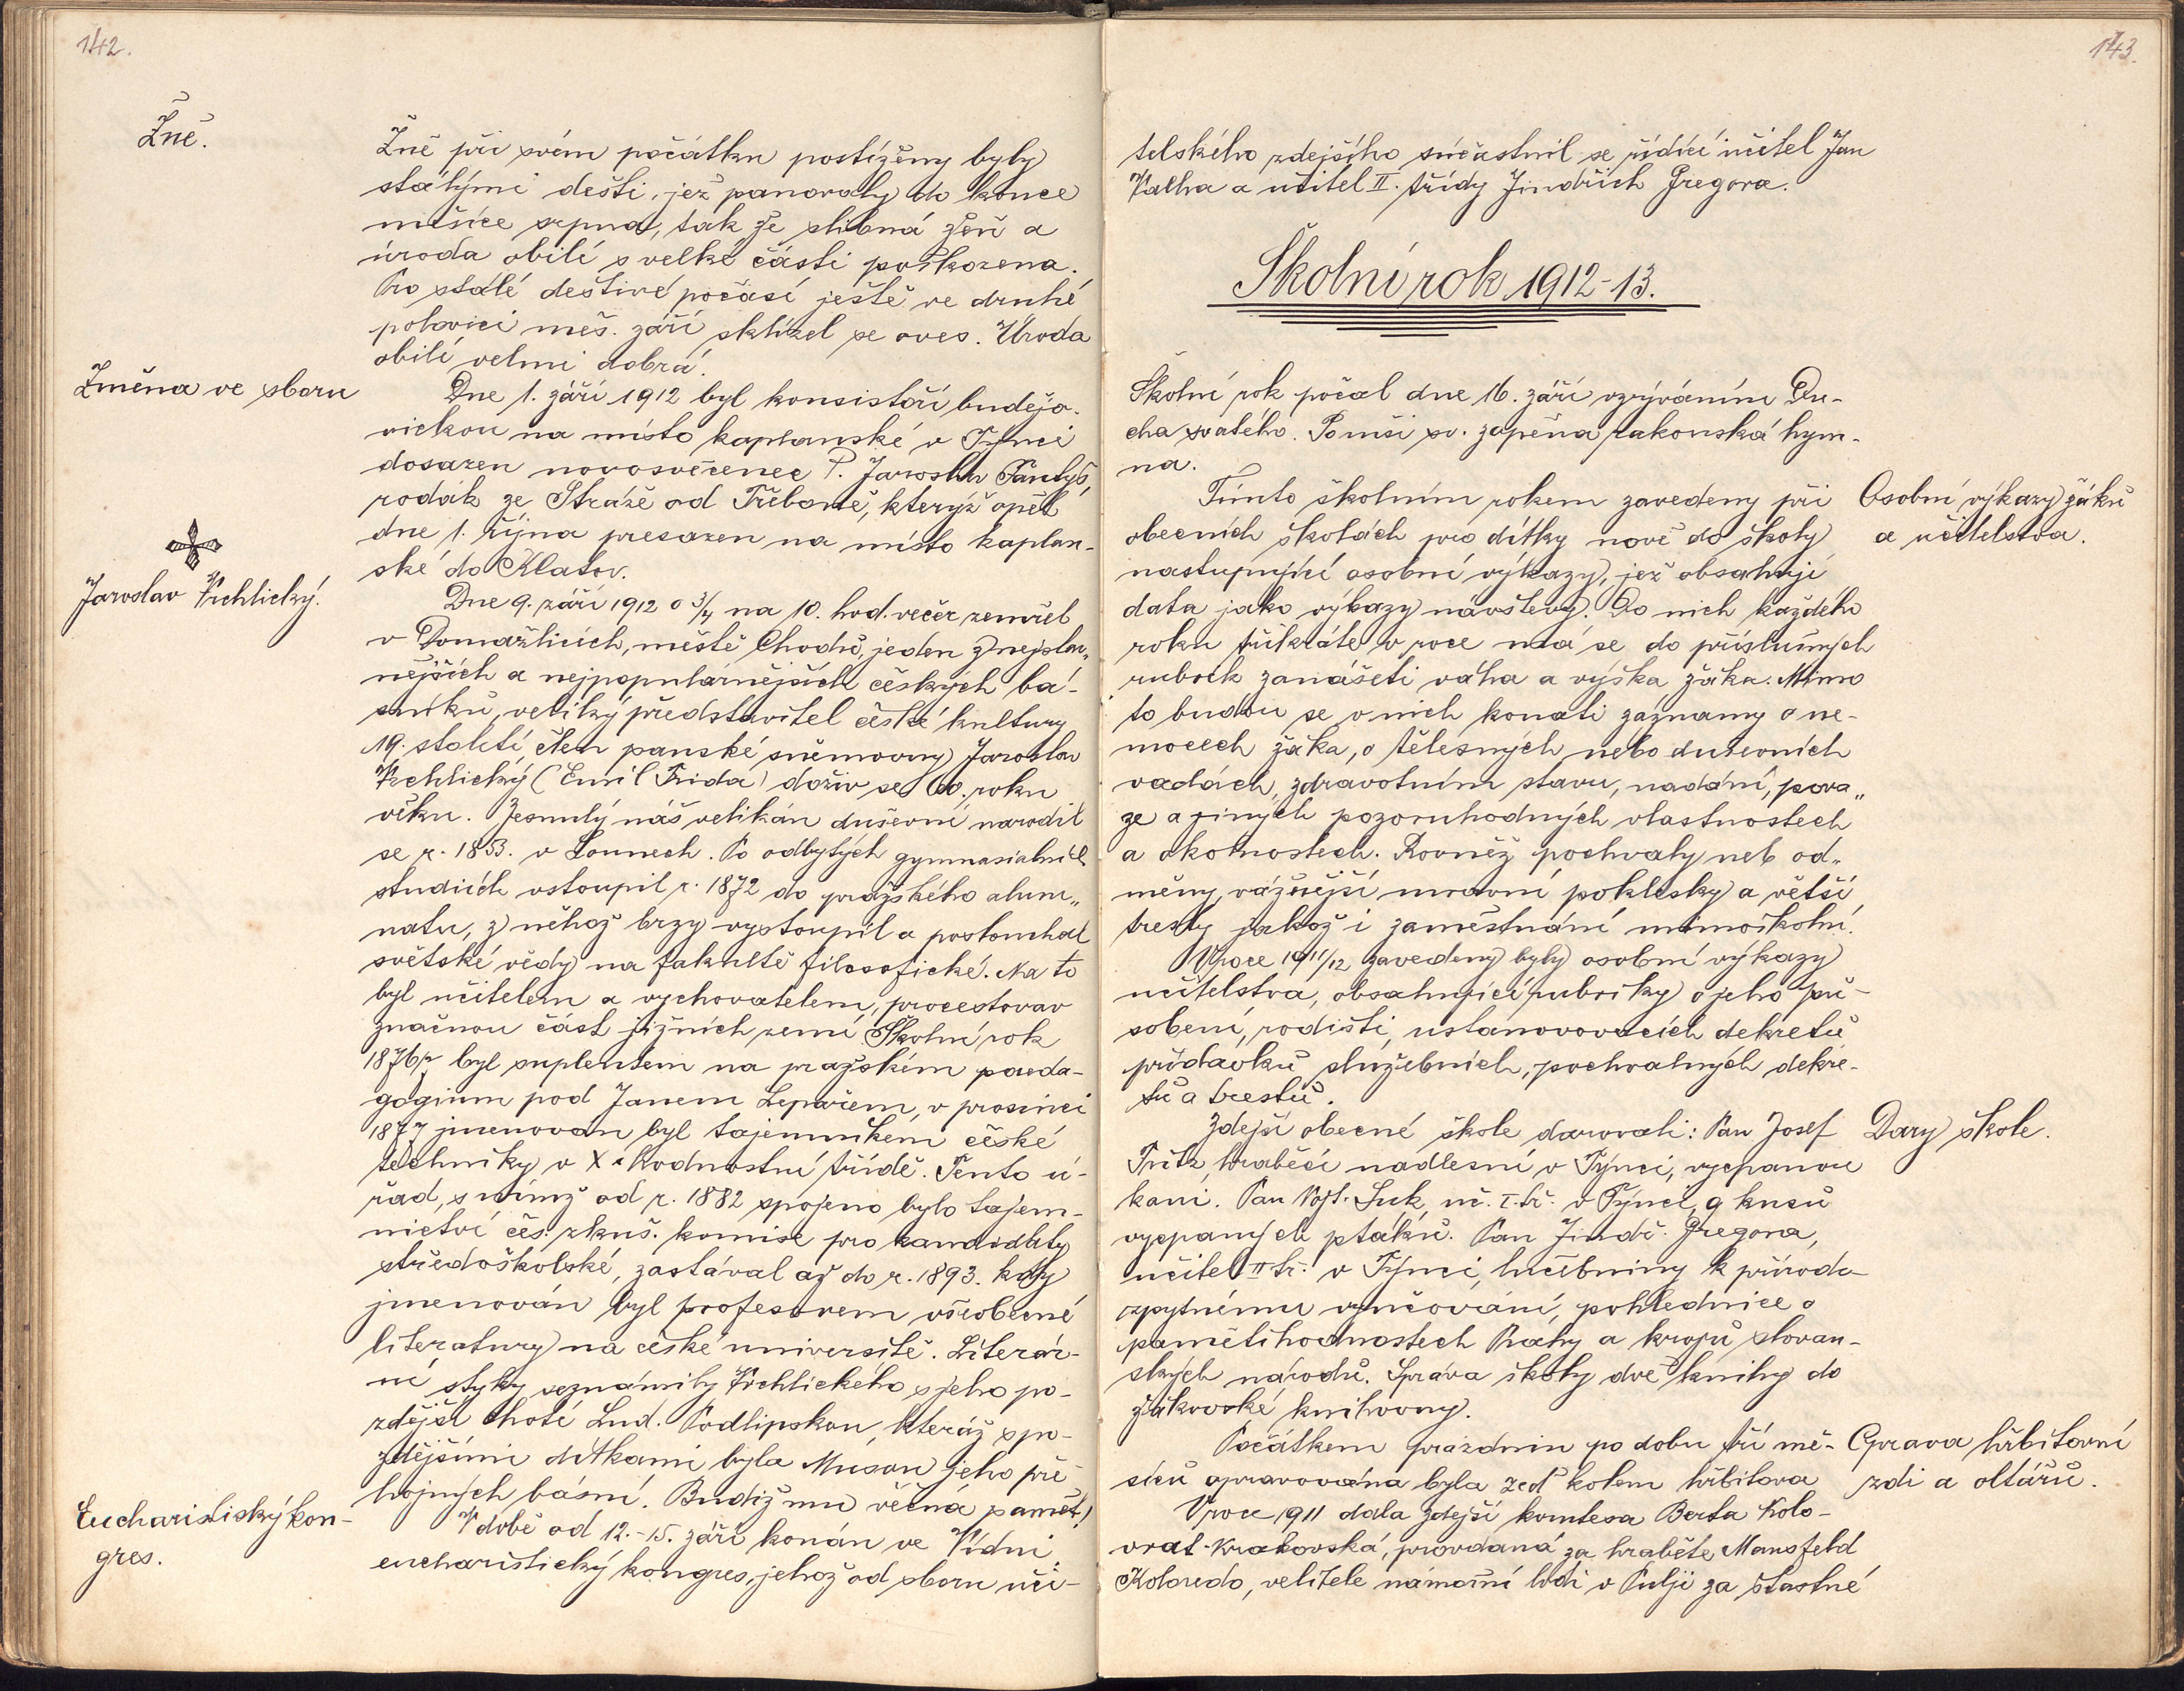 142.
Žně.
Žně při svém počátku postíženy byly
stálými dešti, jež panovaly do konce
měsíce srpna, tak že slibná žeň a
úroda obilí s velké části poškozena.
Pro stálé deštivé počasí ještě ve druhé
polovici měs. září sklízel se oves. Úroda
obilí velmi dobrá.
Změna ve sboru
Dne 1. září 1912 byl konsistoří budějo-
vickou na místo kaplanské v Týnci
dosazen novosvěcenec P. Jaroslav
rodák ze Stráže od Třeboně, kterýž opět
dne 1. října přesazen na místo kaplan-
ské do Klatov.
Jaroslav Vrchlický.
Dne 9. září 1912 o 3/4 na 10. hod. večer zemřel
v Domažlicích, městě Chodů, jeden z nejslav„
nějších a nejpopulárnějších českých bá-
sníků, veliký představitel české kultury
19. století člen panské sněmovny Jaroslav
Vrchlický (Emil Frida) doživ se 60. roku
věku. Zesnulý náš velikán duševní narodil
se r. 1853. v Lounech. Po odbytých gymnasialních
studiích vstoupil r. 1872 do pražského alum„
natu, z něhož brzy vystoupil a poslouchal
světské vědy na fakultě filosofické. Na to
byl učitelem a vychovatelem, procestovav
značnou část jižních zemí. Školní rok
1876/7 byl suplentem na pražském paeda-
gogium pod Janem Lepařem, v prosinci
1877 jmenován byl tajemníkem české
techniky v X. hodnostní třídě. Tento ú-
řad, s nímž od r. 1882 spojeno bylo tajem-
nictví čes. zkuš. komise pro kandidáty
středoškolské, zastával až do r. 1893. kdy
jmenován byl profesorem všeobecné
literatury na české universitě. Literár-
ní styky seznámily Vrchlického s jeho po-
zdější chotí Lud. Podlipskou, kteráž s po-
zdějšími dítkami byla Musou jeho pře
hojných básní. Budiž mu věčná paměť!
Eucharistiský kon-
gres.
V době od 12.-15. září konán ve Vídni
eucharistický kongres, jehož od sboru uči-
143.
telského zdejšího súčastnil se řídící učitel Jan
Kalha a učitel II. třídy Jindřich Gregora.
Školní rok 1912-13.
Školní rok počal dne 16. září vzýváním Du-
cha svatého. Po mši sv. zapěna rakouská hym-
na.
Osobní výkazy žáků
a učitelstva.
Tímto školním rokem zavedeny při
obecních školách pro dítky nově do školy
nastupující osobní výkazy, jež obsahují
data jako výkazy návštěvy. Do nich každého
roku třikráte v roce má se do příslušných
rubrik zanášeti váha a výška žáka. Mimo
to budou se v nich konati záznamy o ne-
mocech žáka, o tělesných nebo duševních
vadách, zdravotním stavu, nadání, pova„
ze a jiných pozoruhodných vlastnostech
a okolnostech. Rovněž pochvaly neb od„
měny, vážnější mravní poklésky a větší
tresty jakož i zaměstnání mimoškolní.
V roce 1911/12 zavedeny byly osobní výkazy
učitelstva, obsahující rubriky o jeho pů-
sobení, rodišti, ustanovovacích dekretů
přídavků služebních, pochvalných dekre-
tů a trestů.
Dary škole.
Zdejší obecné škole darovali: Pan Josef
Fritz, hraběcí nadlesní v Týnci, vycpanou
kani. Pan Vojt. Suk, uč. I. tř. v Týnci, 9 kusů
vycpaných ptáků. Pan Jindř. Gregora,
učitel II tř. v Týnci, učebniny k přírodo-
zpytnému vyučování, pohlednice o
pamětihodnostech Prahy a krojů slovan-
ských národů. Správa školy dvě knihy do
žákovské knihovny.
Oprava hřbitovní
zdi a oltářů.
Počátkem prázdnin po dobu tří mě-
síců opravována byla zeď kolem hřbitova
V roce 1911 dala zdejší komtesa Berta Kolo-
vrat-Krakovská, provdaná za hraběte Mansfeld
Koloredo, velitele námořní lodi v Pulji za šťastné